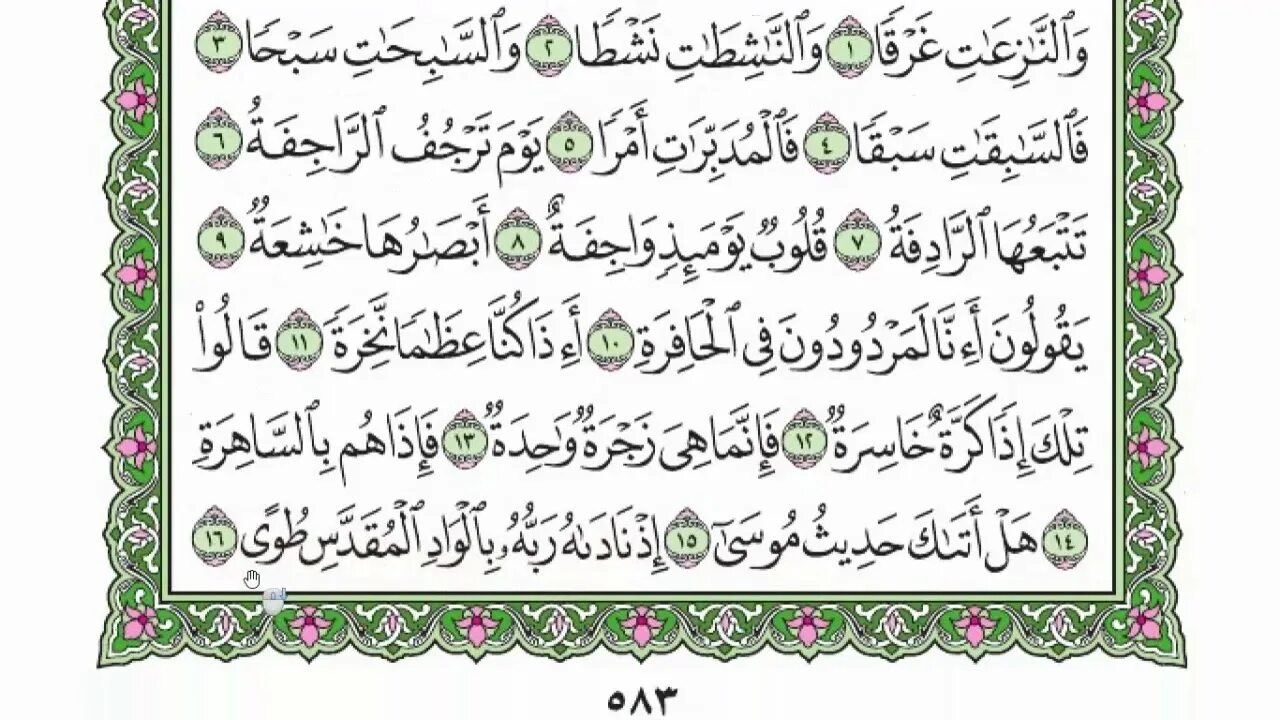 وَٱلنَّٰزِعَٰتِ غَرْقًا ١ وَٱلنَّٰشِطَٰتِ نَشْطًا ٢ وَٱلسَّٰبِحَٰتِ سَبْحًا ٣
فَٱلسَّٰبِقَٰتِ سَبْقًا ٤ فَٱلْمُدَبِّرَٰتِ أَمْرًا ٥ يَوْمَ تَرْجُفُ ٱلرَّاجِفَةُ ٦
تَتْبَعُهَا ٱلرَّادِفَةُ ٧ قُلُوبٌ يَوْمَئِذٍ وَاجِفَةٌ ٨ أَبْصَٰرُهَا خَٰشِعَةٌ ٩
يَقُولُونَ أَءِنَّا لَمَرْدُودُونَ فِى ٱلْحَافِرَةِ ١٠ أَءِذَا كُنَّا عِظَٰمًا نَّخِرَةً ١١ قَالُوا۟
تِلْكَ إِذًا كَرَّةٌ خَاسِرَةٌ ١٢ فَإِنَّمَا هِىَ زَجْرَةٌ وَٰحِدَةٌ ١٣ فَإِذَا هُم بِٱلسَّاهِرَةِ
١٤ هَلْ أَتَىٰكَ حَدِيثُ مُوسَىٰٓ ١٥ إِذْ نَادَىٰهُ رَبُّهُۥ بِٱلْوَادِ ٱلْمُقَدَّسِ طُوًى ١٦
٥٨٣